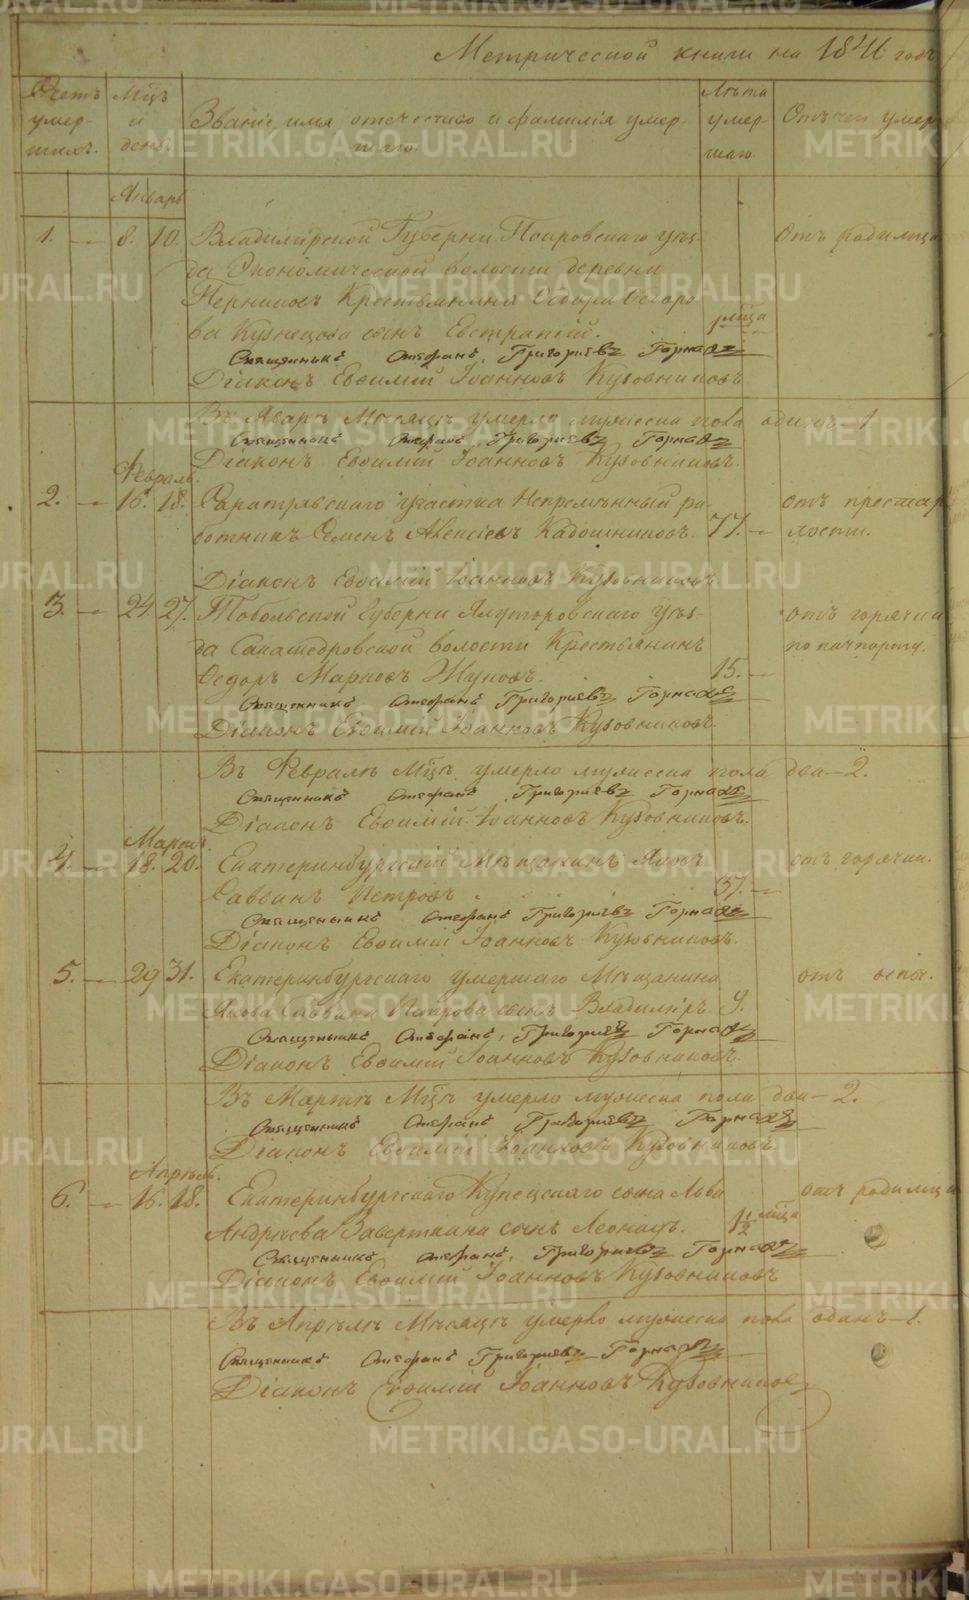 Метрической книги на 1841 годъ
Счетъ умер-шихъ.
Мцъ и день.
Званіе, имя отечество и фамилія умер-
шаго.
Лѣта умер-шаго
Отъ чего умеръ
Январь
1. — 8. 10. Владимірской Губерни Покровскаго уѣз- Отъ родимца
да Экономической волости деревни
Крестьянина Ѳедора Ѳедоро
ва Кузнецова сынъ Евстратій. мѣца
Священникъ Стефанъ Григорьевъ
Діаконъ Евѳимій Іоанновъ Кузовниковъ
Въ Январѣ Мѣсяцѣ умерло мужеска пола одинъ — 1
Священникъ Стефанъ Григорьевъ
Діаконъ Евѳимій Іоанновъ Кузовниковъ.
Февраль.
2. — 16. 18. участка Непремѣнный ра- отъ престар
ботникъ Семенъ Алексіевъ Кадошниковъ. 77. — лости.
Діаконъ Евѳимій Іоанновъ Кузовниковъ.
3. — 24. 27. Тобольской Губерни Ялуторовскаго уѣз- отъ горячки
да волости Крестьянинъ по пачпорту.
Ѳедоръ Марковъ 15. —
Священникъ Стефанъ Григорьевъ
Діаконъ Евѳимій Іоанновъ Кузовниковъ.
Въ Февралѣ Мцѣ умерло мужеска пола два — 2.
Священникъ Стефанъ Григорьевъ
Діаконъ Евѳимій Іоанновъ Кузовниковъ.
Мартъ.
4. — 18. 20. Екатеринбургскій Мѣщанинъ Яковъ отъ горячки.
Саввинъ Петровъ. 37. —
Священникъ Стефанъ Григорьевъ
Діаконъ Евѳимій Іоанновъ Кузовниковъ.
5. — 29 31. Екатеринбургскаго умершаго Мѣщанина отъ оспы.
Якова Саввина Петрова сынъ Владиміръ. 9.
Священникъ Стефанъ Григорьевъ
Діаконъ Евѳимій Іоанновъ Кузовниковъ.
Въ Мартѣ Мцѣ умерло мужеска пола два — 2.
Священникъ Стефанъ Григорьевъ
Діаконъ Евѳимій Іоанновъ Кузовниковъ.
Апрѣль.
6. — 16. 18. Екатеринбургскаго Купецскаго сына Льва отъ родимца
Андреева сынъ Леонидъ. 1 1/2 мѣца
Священникъ Стефанъ Григорьевъ
Діаконъ Евѳимій Іоанновъ Кузовниковъ
Въ Апрѣлѣ Мѣсяцѣ умерло мужеска пола одинъ — 1.
Священникъ Стефанъ Григорьевъ
Діаконъ Евѳимій Іоанновъ Кузовниковъ
METRIKI.GASO-URAL.RU